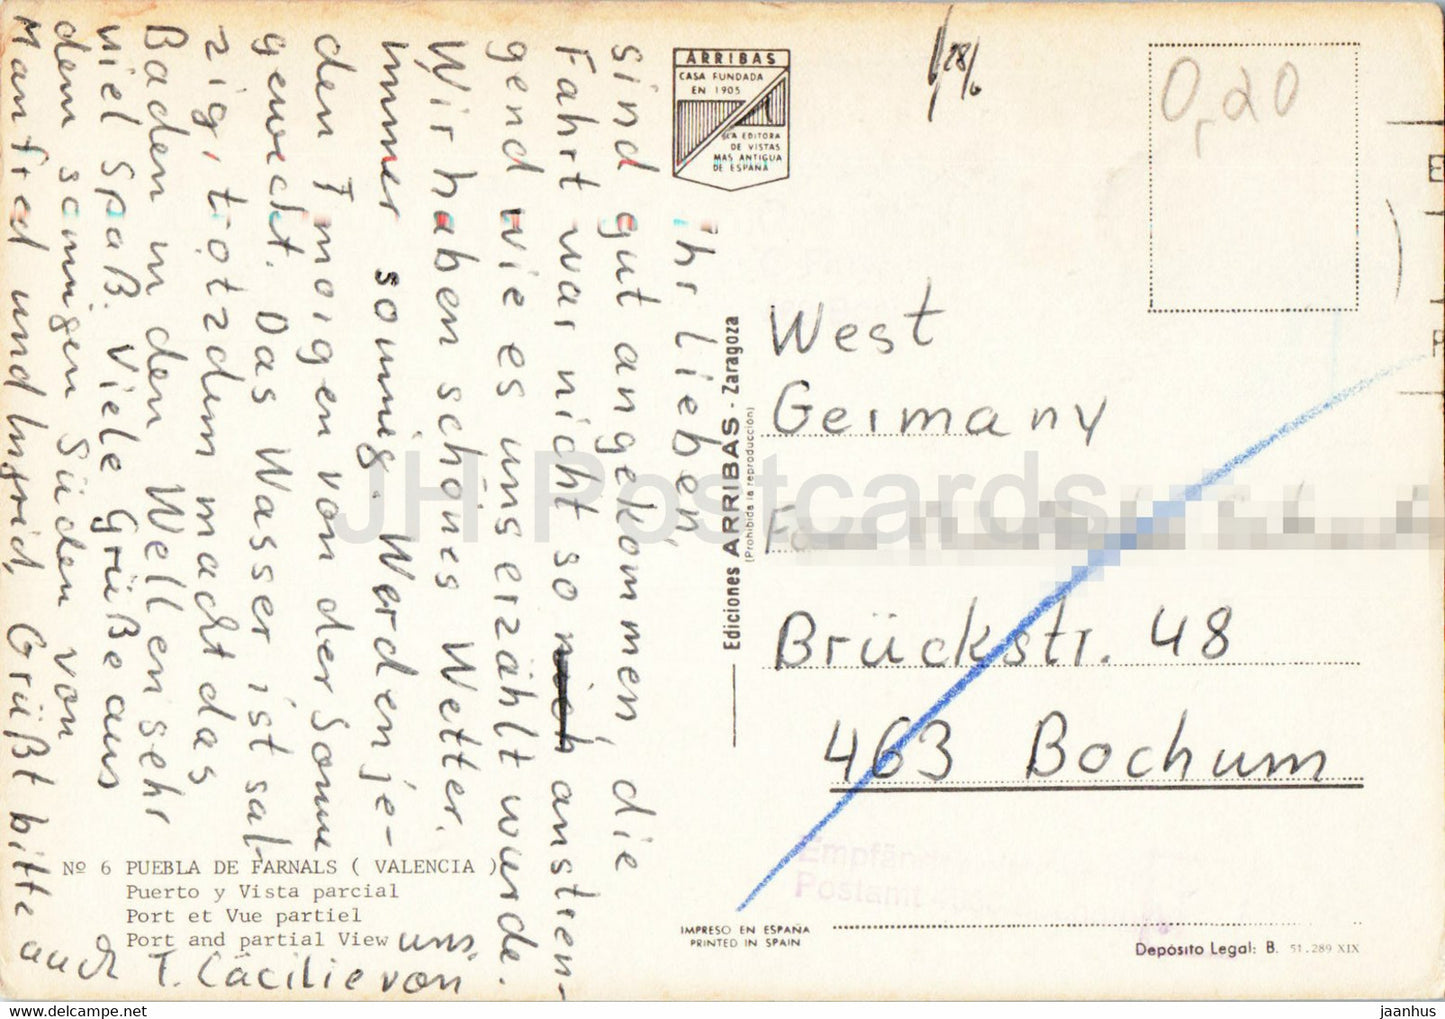 Ihr Lieben,
sind gut angekommen, die
Fahrt war nicht so anstren-
gend wie es uns erzählt wurde.
Wir haben schönes Wetter.
immer sonnig. Werden je-
den Morgen von der Sonne
geweckt. Das Wasser ist sal-
zig, trotzdem macht das
Baden in den Wellen sehr
viel Spaß. Viele Grüße aus
dem sonnigen Süden von
Manfred und Ingrid, Grüßt bitte
auch T. Cäcilie von uns.
ARRIBAS
CASA FUNDADA
EN 1905
ES LA EDITORA
DE VISTAS
MAS ANTIGUA
DE ESPAÑA
28/6
0,20
Ediciones ARRIBAS - Zaragoza
(Prohibida la reproducción)
West
Germany
Brückstr. 48
463 Bochum
Empfänger
Postamt 463
Nº 6 PUEBLA DE FARNALS ( VALENCIA )
Puerto y Vista parcial
Port et Vue partiel
Port and partial View
IMPRESO EN ESPAÑA
PRINTED IN SPAIN
Depósito Legal: B. 51.289 XIX
JH Postcards
www.delcampe.net
jaanhus